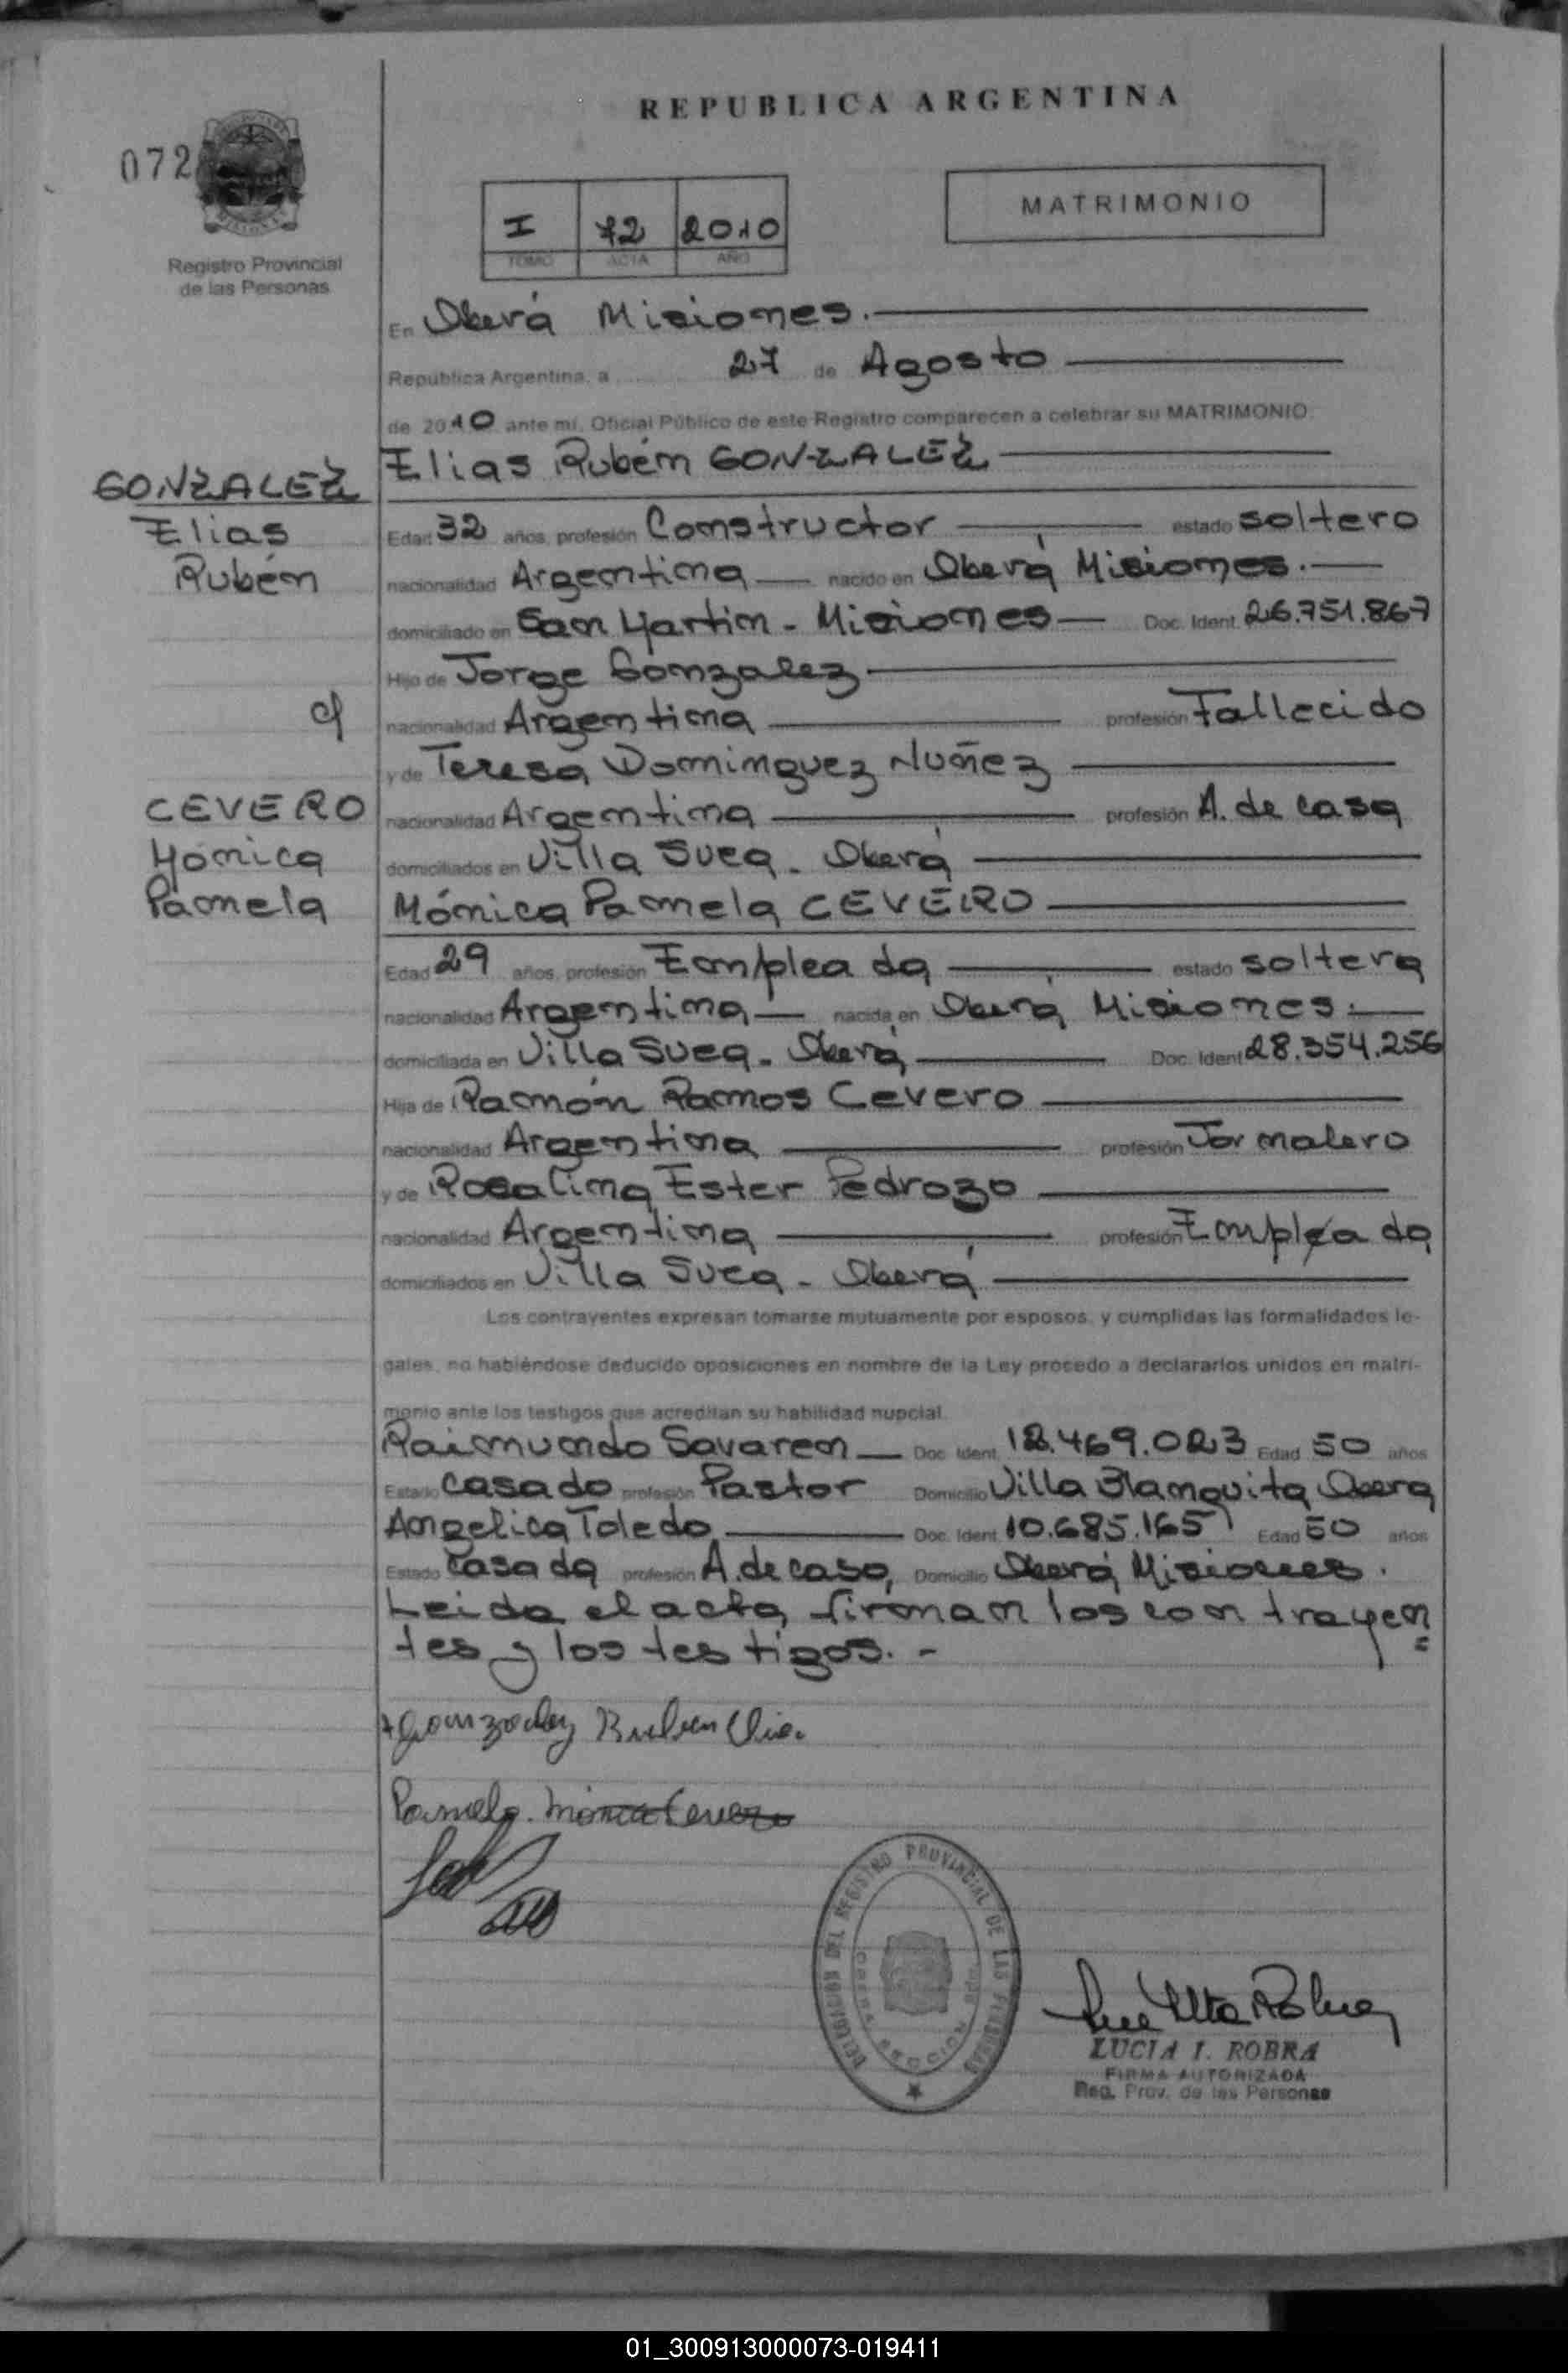 REPUBLICA ARGENTINA
072
MATRIMONIO
I 72 2010
TOMO ACTA AÑO
Registro Provincial
de las Personas
En Oberá Misiones.
República Argentina, a 27 de Agosto
de 2010 ante mí, Oficial Público de este Registro comparecen a celebrar su MATRIMONIO.
Elias Rubén GONZALEZ
GONZALEZ
Elias
Rubén
Edad 32 años, profesión Constructor estado soltero
nacionalidad Argentina nacido en Oberá Misiones.
domiciliado en San Martin - Misiones Doc. Ident. 26.751.867
Hijo de Jorge Gonzalez
c/
nacionalidad Argentina profesión Fallecido
y de Teresa Dominguez Nuñez
CEVERO
Mónica
Pamela
nacionalidad Argentina profesión A. de casa
domiciliados en Villa Sueca - Oberá
Mónica Pamela CEVERO
Edad 29 años, profesión Empleada estado soltera
nacionalidad Argentina nacida en Oberá Misiones.
domiciliada en Villa Sueca - Oberá Doc. Ident 28.354.256
Hija de Ramón Ramos Cevero
nacionalidad Argentina profesión Jornalero
y de Rosalina Ester Pedrozo
nacionalidad Argentina profesión Empleada
domiciliados en Villa Sueca - Oberá
Los contrayentes expresan tomarse mutuamente por esposos, y cumplidas las formalidades le-
gales, no habiéndose deducido oposiciones en nombre de la Ley procedo a declararlos unidos en matri-
monio ante los testigos que acreditan su habilidad nupcial.
Raimundo Savaren Doc. Ident. 12.469.023 Edad 50 años
Estado casado profesión Pastor Domicilio Villa Blanquita Oberá
Angelica Toledo Doc. Ident. 10.685.165 Edad 50 años
Estado casada profesión A. de casa, Domicilio Oberá Misiones.
Leida el acta, firman los contrayen=
tes y los testigos. -
Gonzalez Ruben Elia.
Pamela. Monica Cevero
DELEGACION DEL REGISTRO PROVINCIAL DE LAS PERSONAS
LUCIA I. ROBRA
FIRMA AUTORIZADA
Reg. Prov. de las Personas
01_300913000073-019411